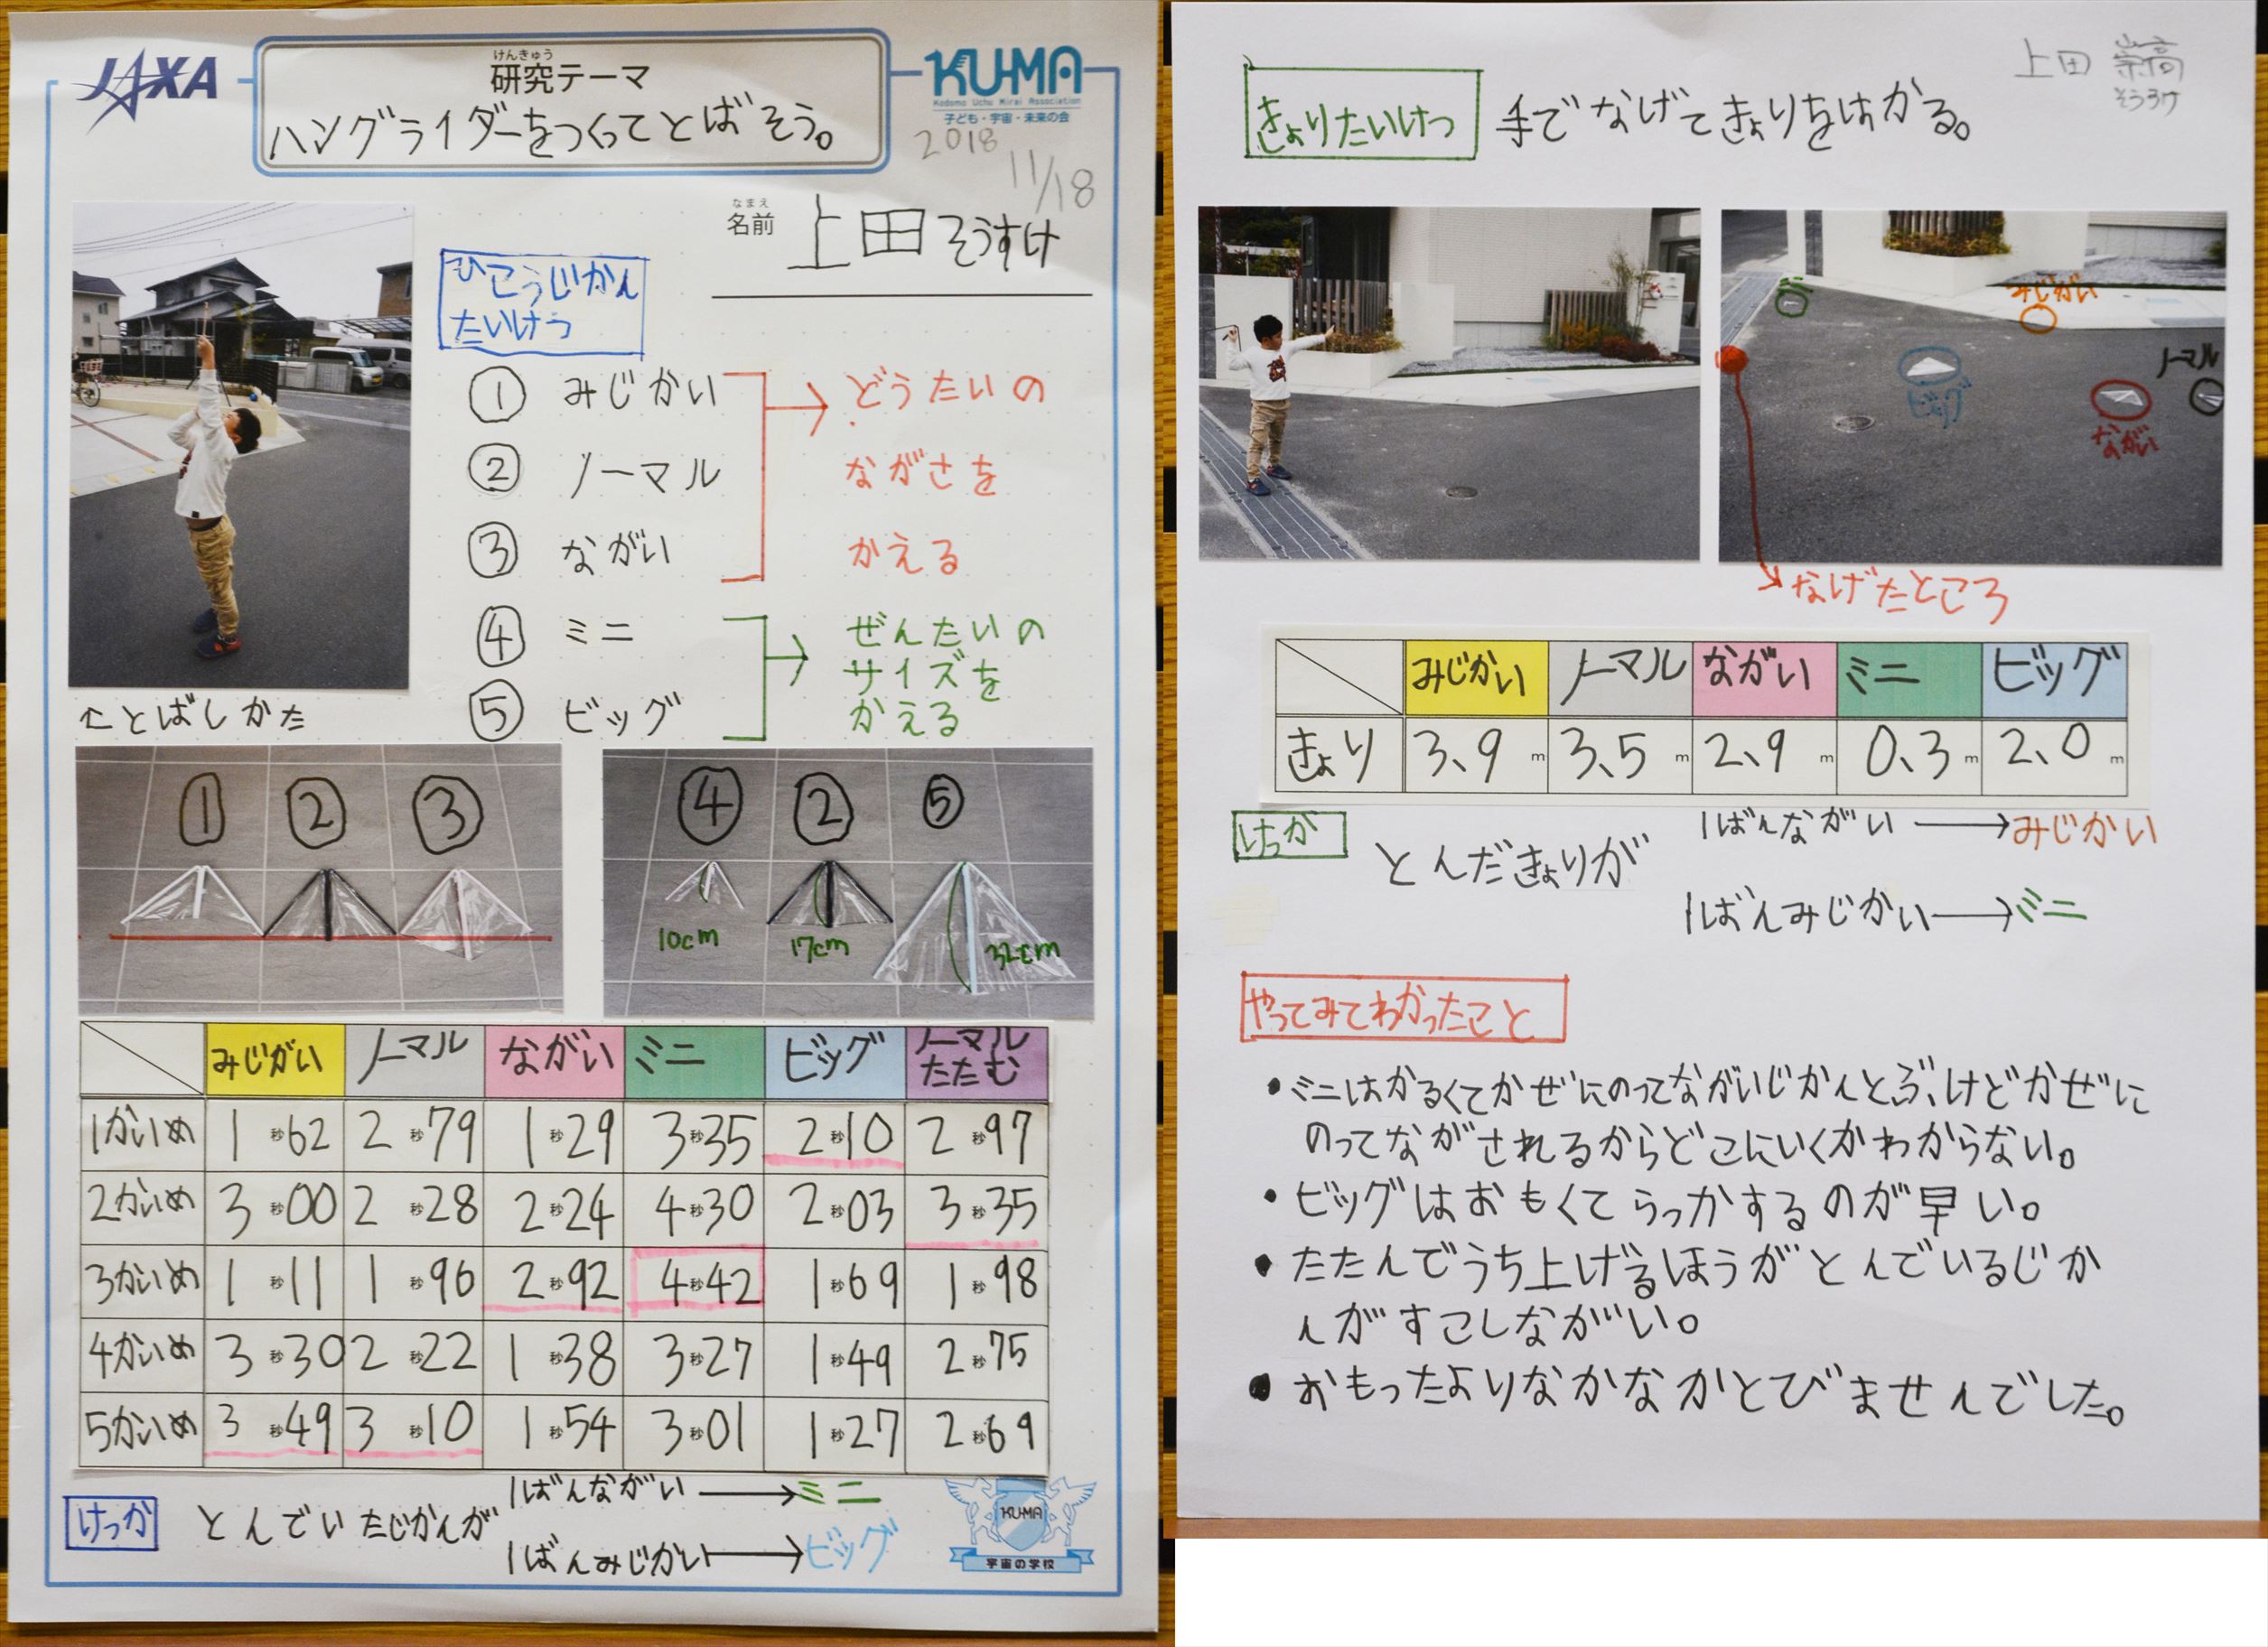 JAXA
けんきゅう
研究テーマ
ハングライダーをつくってとばそう。
KU-MA
Kodomo Uchu Mirai Association
子ども・宇宙・未来の会
2018
11/18
なまえ
名前 上田そうすけ
ひこうじかん
たいけつ
① みじかい
② ノーマル
③ ながい
どうたいの
ながさを
かえる
④ ミニ
⑤ ビッグ
ぜんたいの
サイズを
かえる
←とばしかた
① ② ③
④ ② ⑤
10cm 17cm 32cm
みじかい ノーマル ながい ミニ ビッグ ノーマルたたむ
1かいめ 1秒62 2秒79 1秒29 3秒35 2秒10 2秒97
2かいめ 3秒00 2秒28 2秒24 4秒30 2秒03 3秒35
3かいめ 1秒11 1秒96 2秒92 4秒42 1秒69 1秒98
4かいめ 3秒30 2秒22 1秒38 3秒27 1秒49 2秒75
5かいめ 3秒49 3秒10 1秒54 3秒01 1秒27 2秒69
けっか とんでいたじかんが
1ばんながい→ミニ
1ばんみじかい→ビッグ
KU-MA
宇宙の学校
上田 崇高
きょりたいけつ 手でなげてきょりをはかる。
ミニ
みじかい
ビッグ
ノーマル
ながい
なげたところ
みじかい ノーマル ながい ミニ ビッグ
きょり 3、9m 3、5m 2、9m 0、3m 2、0m
けっか とんだきょりが
1ばんながい→みじかい
1ばんみじかい→ミニ
やってみてわかったこと
・ミニはかるくてかぜにのってながいじかんとぶけどかぜに
のってながされるからどこにいくかわからない。
・ビッグはおもくてらっかするのが早い。
・たたんでうち上げるほうがとんでいるじか
んがすこしながい。
・おもったよりなかなかとびませんでした。